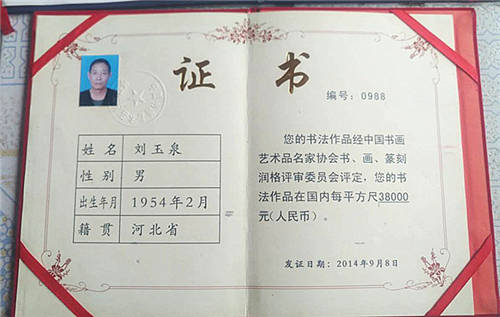 证书
编号：0988
姓名 刘玉泉
性别 男
出生年月 1954年2月
籍贯 河北省
您的书法作品经中国书画
艺术品名家协会书、画、篆刻
润格评审委员会评定，您的书
法作品在国内每平方尺38000
元(人民币)。
发证日期：2014年9月8日